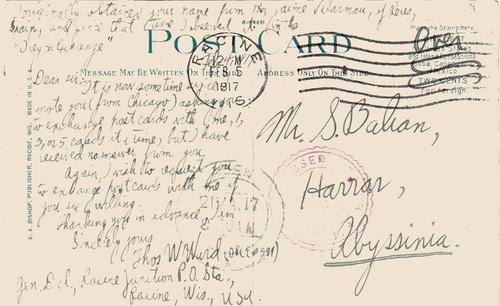 I originally obtained your name from Mr. Jaime
Spain, and since that time I observed it in the
"Design Exchange"
POST CARD
MESSAGE MAY BE WRITTEN ON THIS SIDE
ADDRESS ONLY ON THIS SIDE
RACINE
FEB 5
1917
WIS.
Over
TWO CENTS
For Foreign
Dear sir:
It is now sometime since I
wrote you (from Chicago) asking you
to exchange postcards with me, 1,
3, or 5 cards at a time, but I have
received no answer from you.
Again, I wish to request you
to exchange postcards with me if
you are willing.
Thanking you in advance, I am
Sincerely yours
Thos W Ward
Gen. Del., Racine Junction P.O. Sta.,
Racine, Wis., U.S.A.
Mr. S. Balian,
Harrar,
Abyssinia.
E. A. BISHOP, PUBLISHER, RACINE, WIS. MADE IN U.S.